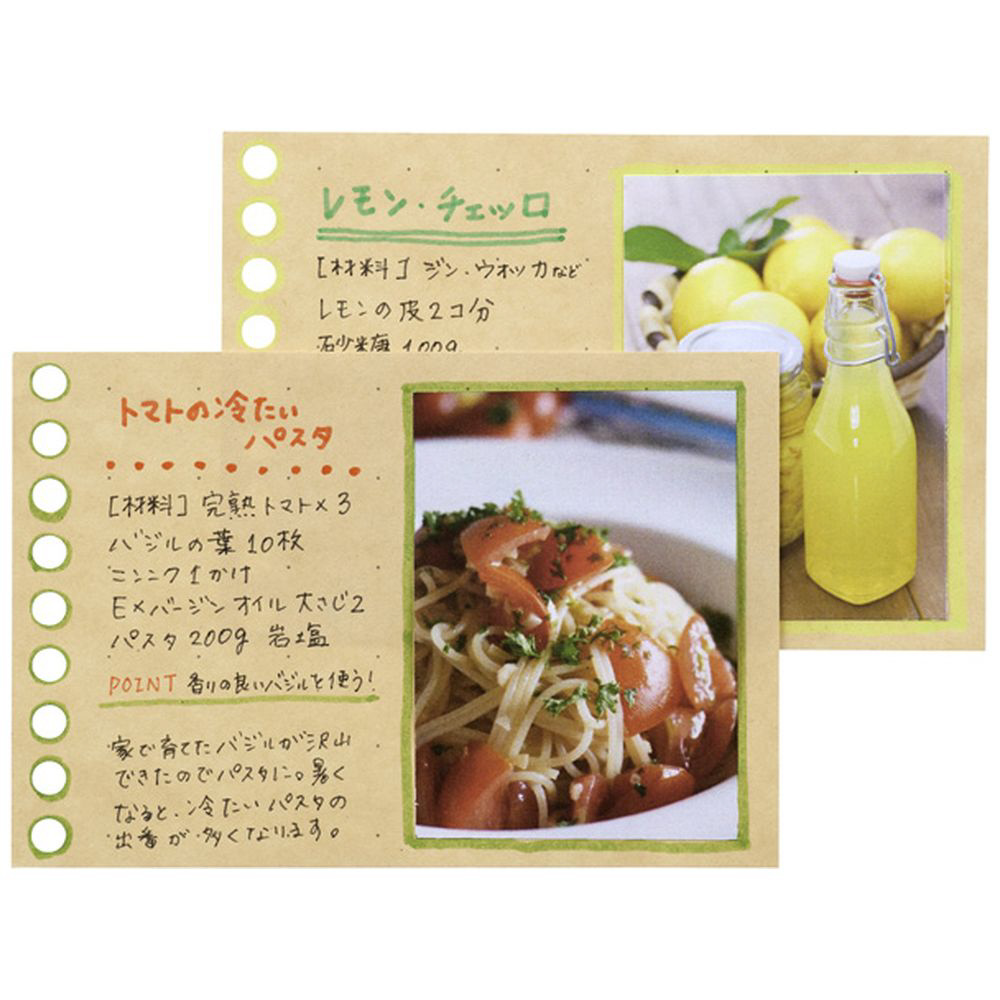 レモン・チェッロ
[材料] ジン・ウオッカなど
レモンの皮2コ分
砂糖100g
トマトの冷たい
パスタ
[材料] 完熟トマト×3
バジルの葉10枚
ニンニク1かけ
E×バージンオイル大さじ2
パスタ200g 岩塩
POINT 香りの良いバジルを使う!
家で育てたバジルが沢山
できたのでパスタに。暑く
なると、冷たいパスタの
出番が多くなります。